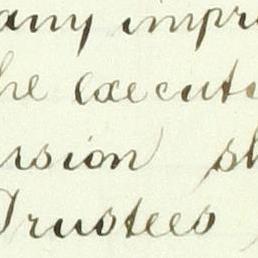 any impr
he execut
rsion sh
Trustees